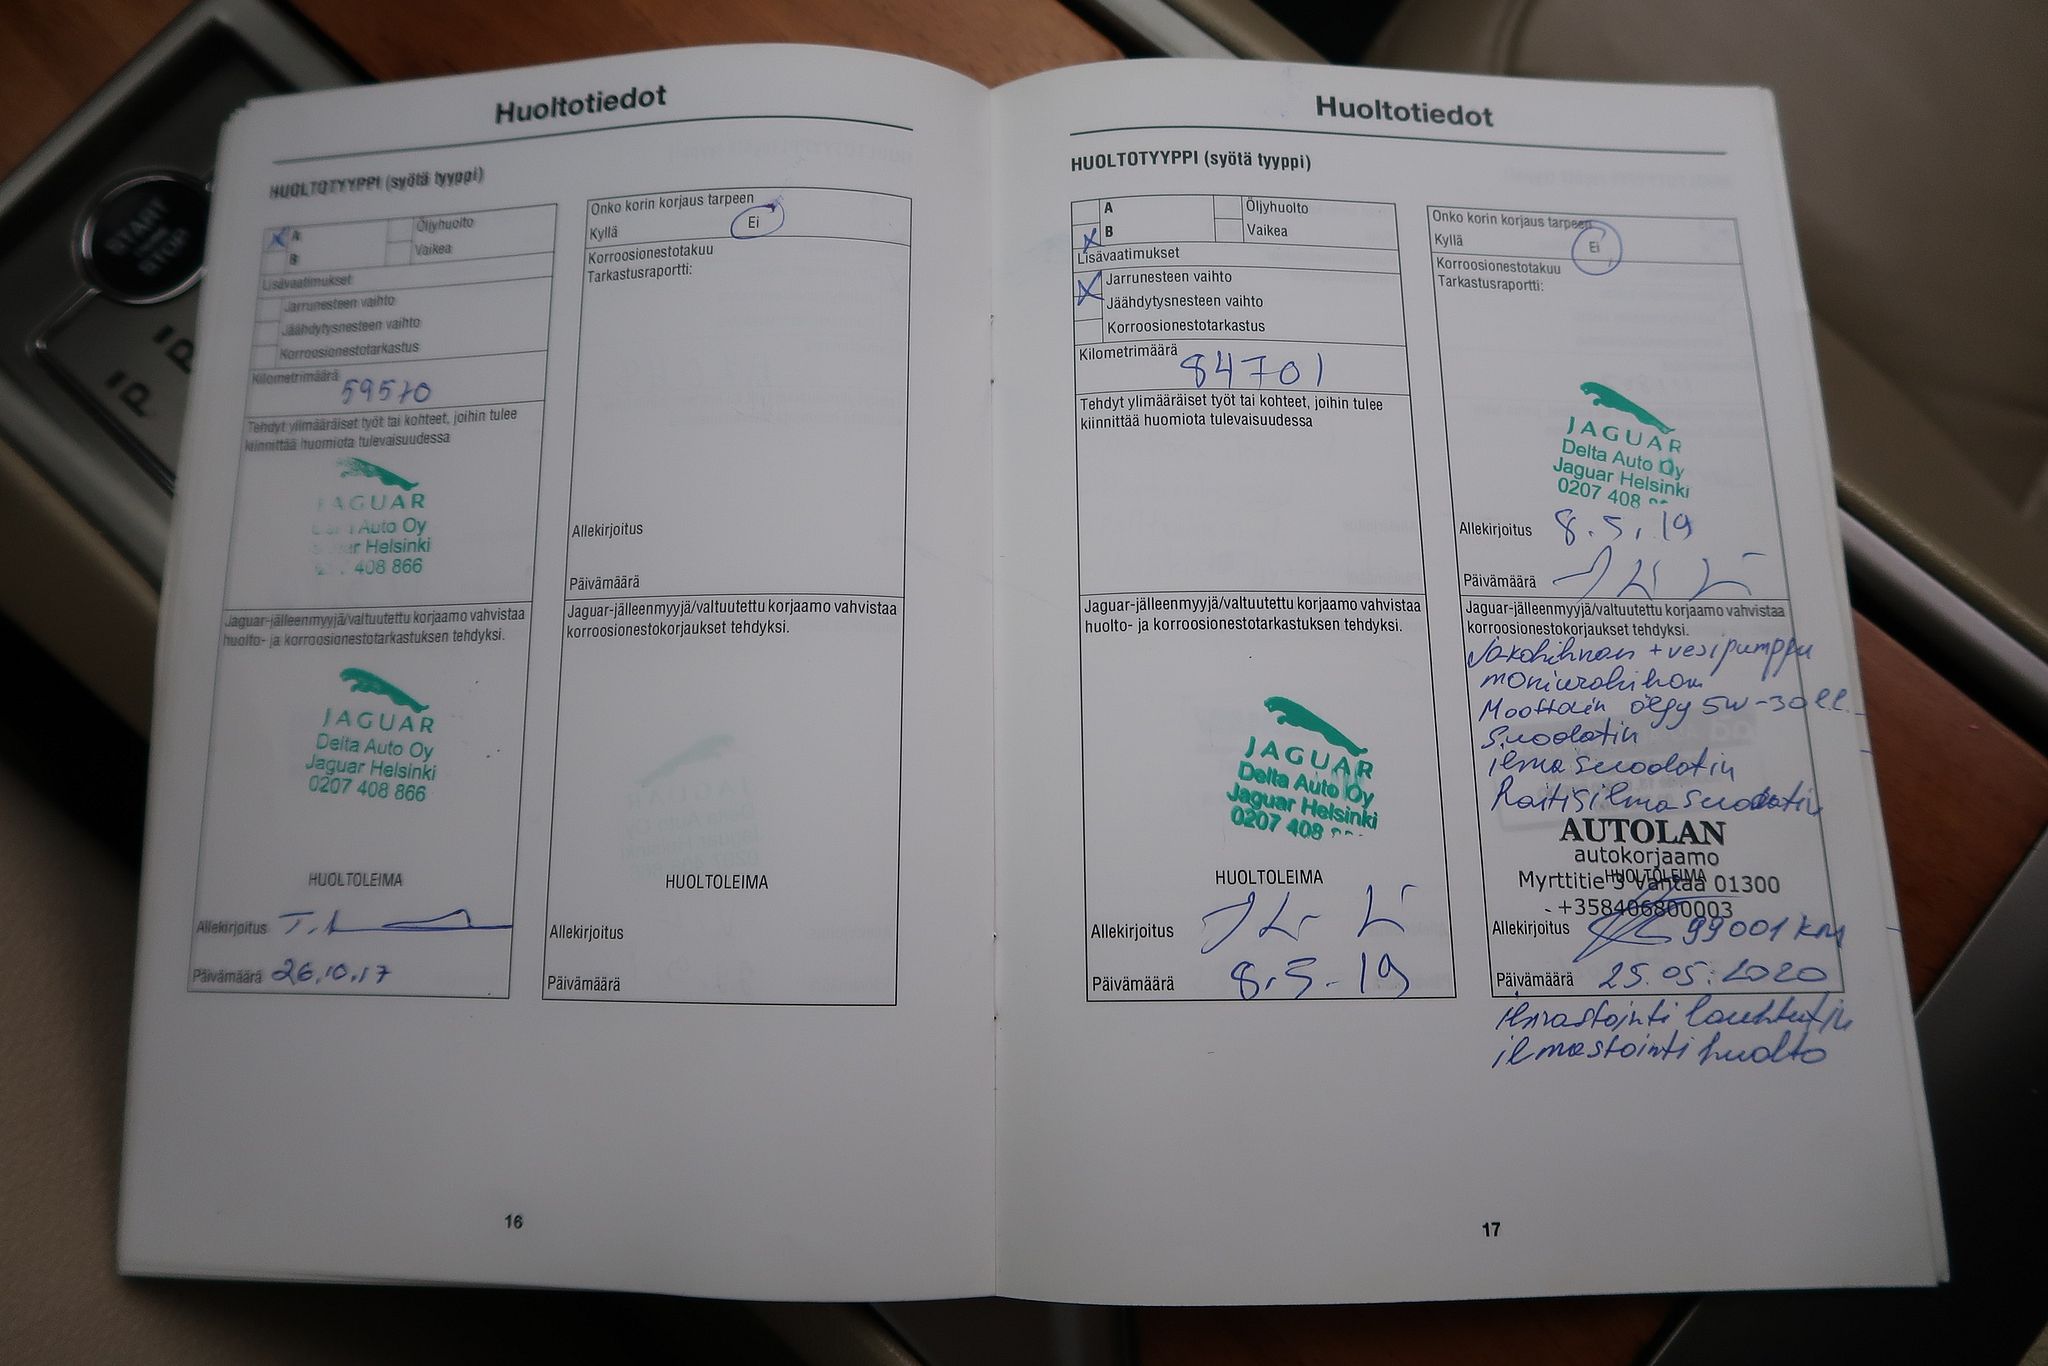 START
STOP
Huoltotiedot
HUOLTOTYYPPI (syötä tyyppi)
A
Öljyhuolto
B
Vaikea
Lisävaatimukset
Jarrunesteen vaihto
Jäähdytysnesteen vaihto
Korroosionestotarkastus
Kilometrimäärä
59570
Tehdyt ylimääräiset työt tai kohteet, joihin tulee
kiinnittää huomiota tulevaisuudessa
JAGUAR
Auto Oy
Helsinki
408 866
Jaguar-jälleenmyyjä/valtuutettu korjaamo vahvistaa
huolto- ja korroosionestotarkastuksen tehdyksi.
JAGUAR
Delta Auto Oy
Jaguar Helsinki
0207 408 866
HUOLTOLEIMA
Allekirjoitus
Päivämäärä 26.10.17
Onko korin korjaus tarpeen
Kyllä Ei
Korroosionestotakuu
Tarkastusraportti:
Allekirjoitus
Päivämäärä
Jaguar-jälleenmyyjä/valtuutettu korjaamo vahvistaa
korroosionestokorjaukset tehdyksi.
HUOLTOLEIMA
Allekirjoitus
Päivämäärä
16
Huoltotiedot
HUOLTOTYYPPI (syötä tyyppi)
A
Öljyhuolto
B
Vaikea
Lisävaatimukset
Jarrunesteen vaihto
Jäähdytysnesteen vaihto
Korroosionestotarkastus
Kilometrimäärä
84701
Tehdyt ylimääräiset työt tai kohteet, joihin tulee
kiinnittää huomiota tulevaisuudessa
Jaguar-jälleenmyyjä/valtuutettu korjaamo vahvistaa
huolto- ja korroosionestotarkastuksen tehdyksi.
JAGUAR
Delta Auto Oy
Jaguar Helsinki
0207 408
HUOLTOLEIMA
Allekirjoitus
Päivämäärä 8.5.19
Onko korin korjaus tarpeen
Kyllä Ei
Korroosionestotakuu
Tarkastusraportti:
JAGUAR
Delta Auto Oy
Jaguar Helsinki
0207 408
Allekirjoitus 8.5.19
Päivämäärä
Jaguar-jälleenmyyjä/valtuutettu korjaamo vahvistaa
korroosionestokorjaukset tehdyksi.
Jakohihnan + vesipumppu
moniurahihna
Moottorin öljy 5W-30
suodatin
ilmasuodatin
Raitisilmasuodatin
AUTOLAN
autokorjaamo
HUOLTOLEIMA
Myrttitie 3 Vantaa 01300
+358406800003
Allekirjoitus 99001 km
Päivämäärä 25.05.2020
ilmastointi
ilmastointi huolto
17